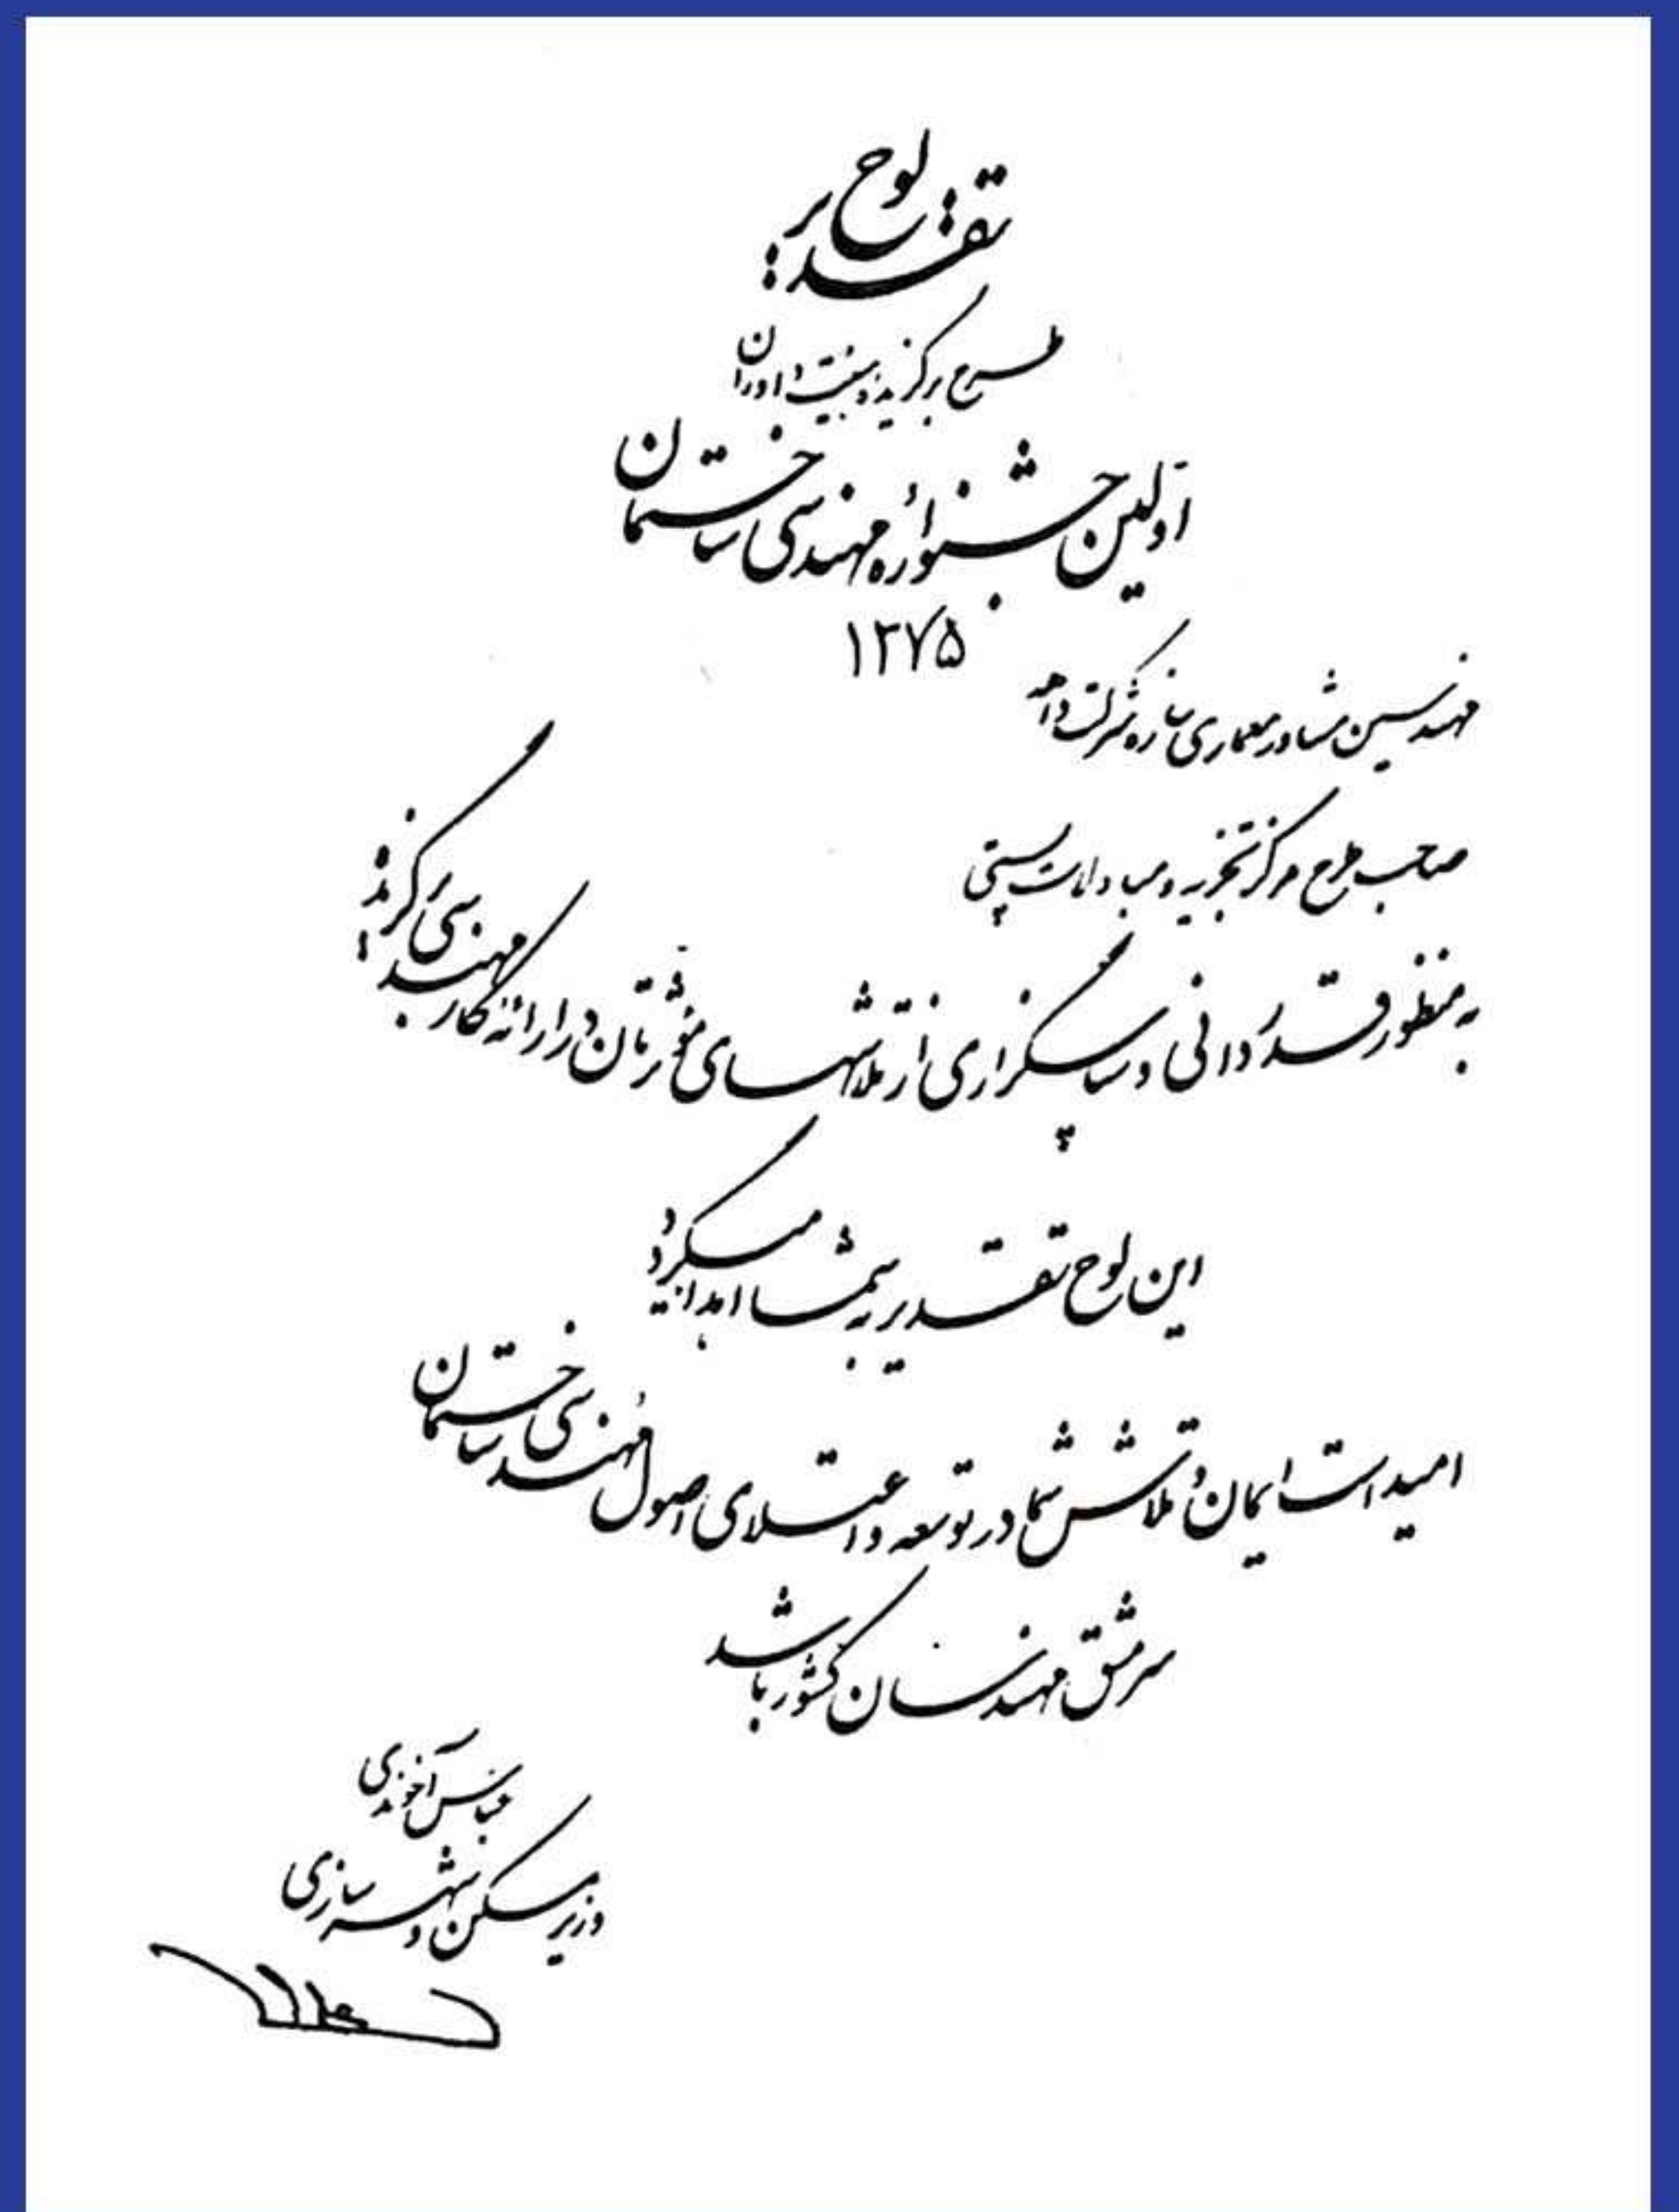 لوح تقدیر
طرح برگزیده هیئت داوران
اولین جشنواره مهندسی ساختمان
۱۳۷۵
مهندسین مشاور معماری سازه شرکت
صاحب طرح مرکز تجزیه و مبادلات پستی
به منظور قدردانی و سپاسگزاری از تلاشهای مؤثرتان در ارائه کار مهندسی برگزیده
این لوح تقدیر به شما اهدا میگردد
امید است ایمان و تلاش شما در توسعه و اعتلای اصول مهندسی ساختمان
سرمشق مهندسان کشور باشد
عباس آخوندی
وزیر مسکن و شهرسازی